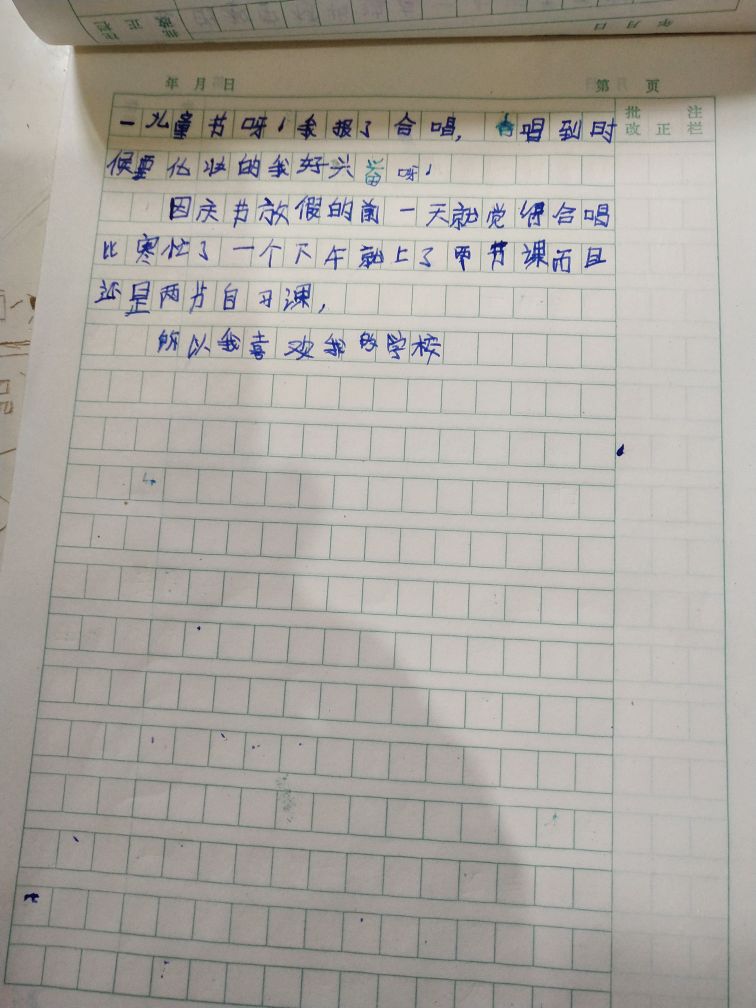 年 月 日
第 页
批 注
改 正 栏
一儿童节呀!我报了合唱,合唱到时
候要化妆的我好兴奋呀!
国庆节放假的前一天就觉得合唱
比赛忙了一个下午就上了两节课而且
还是两节自习课,
所以我喜欢我的学校